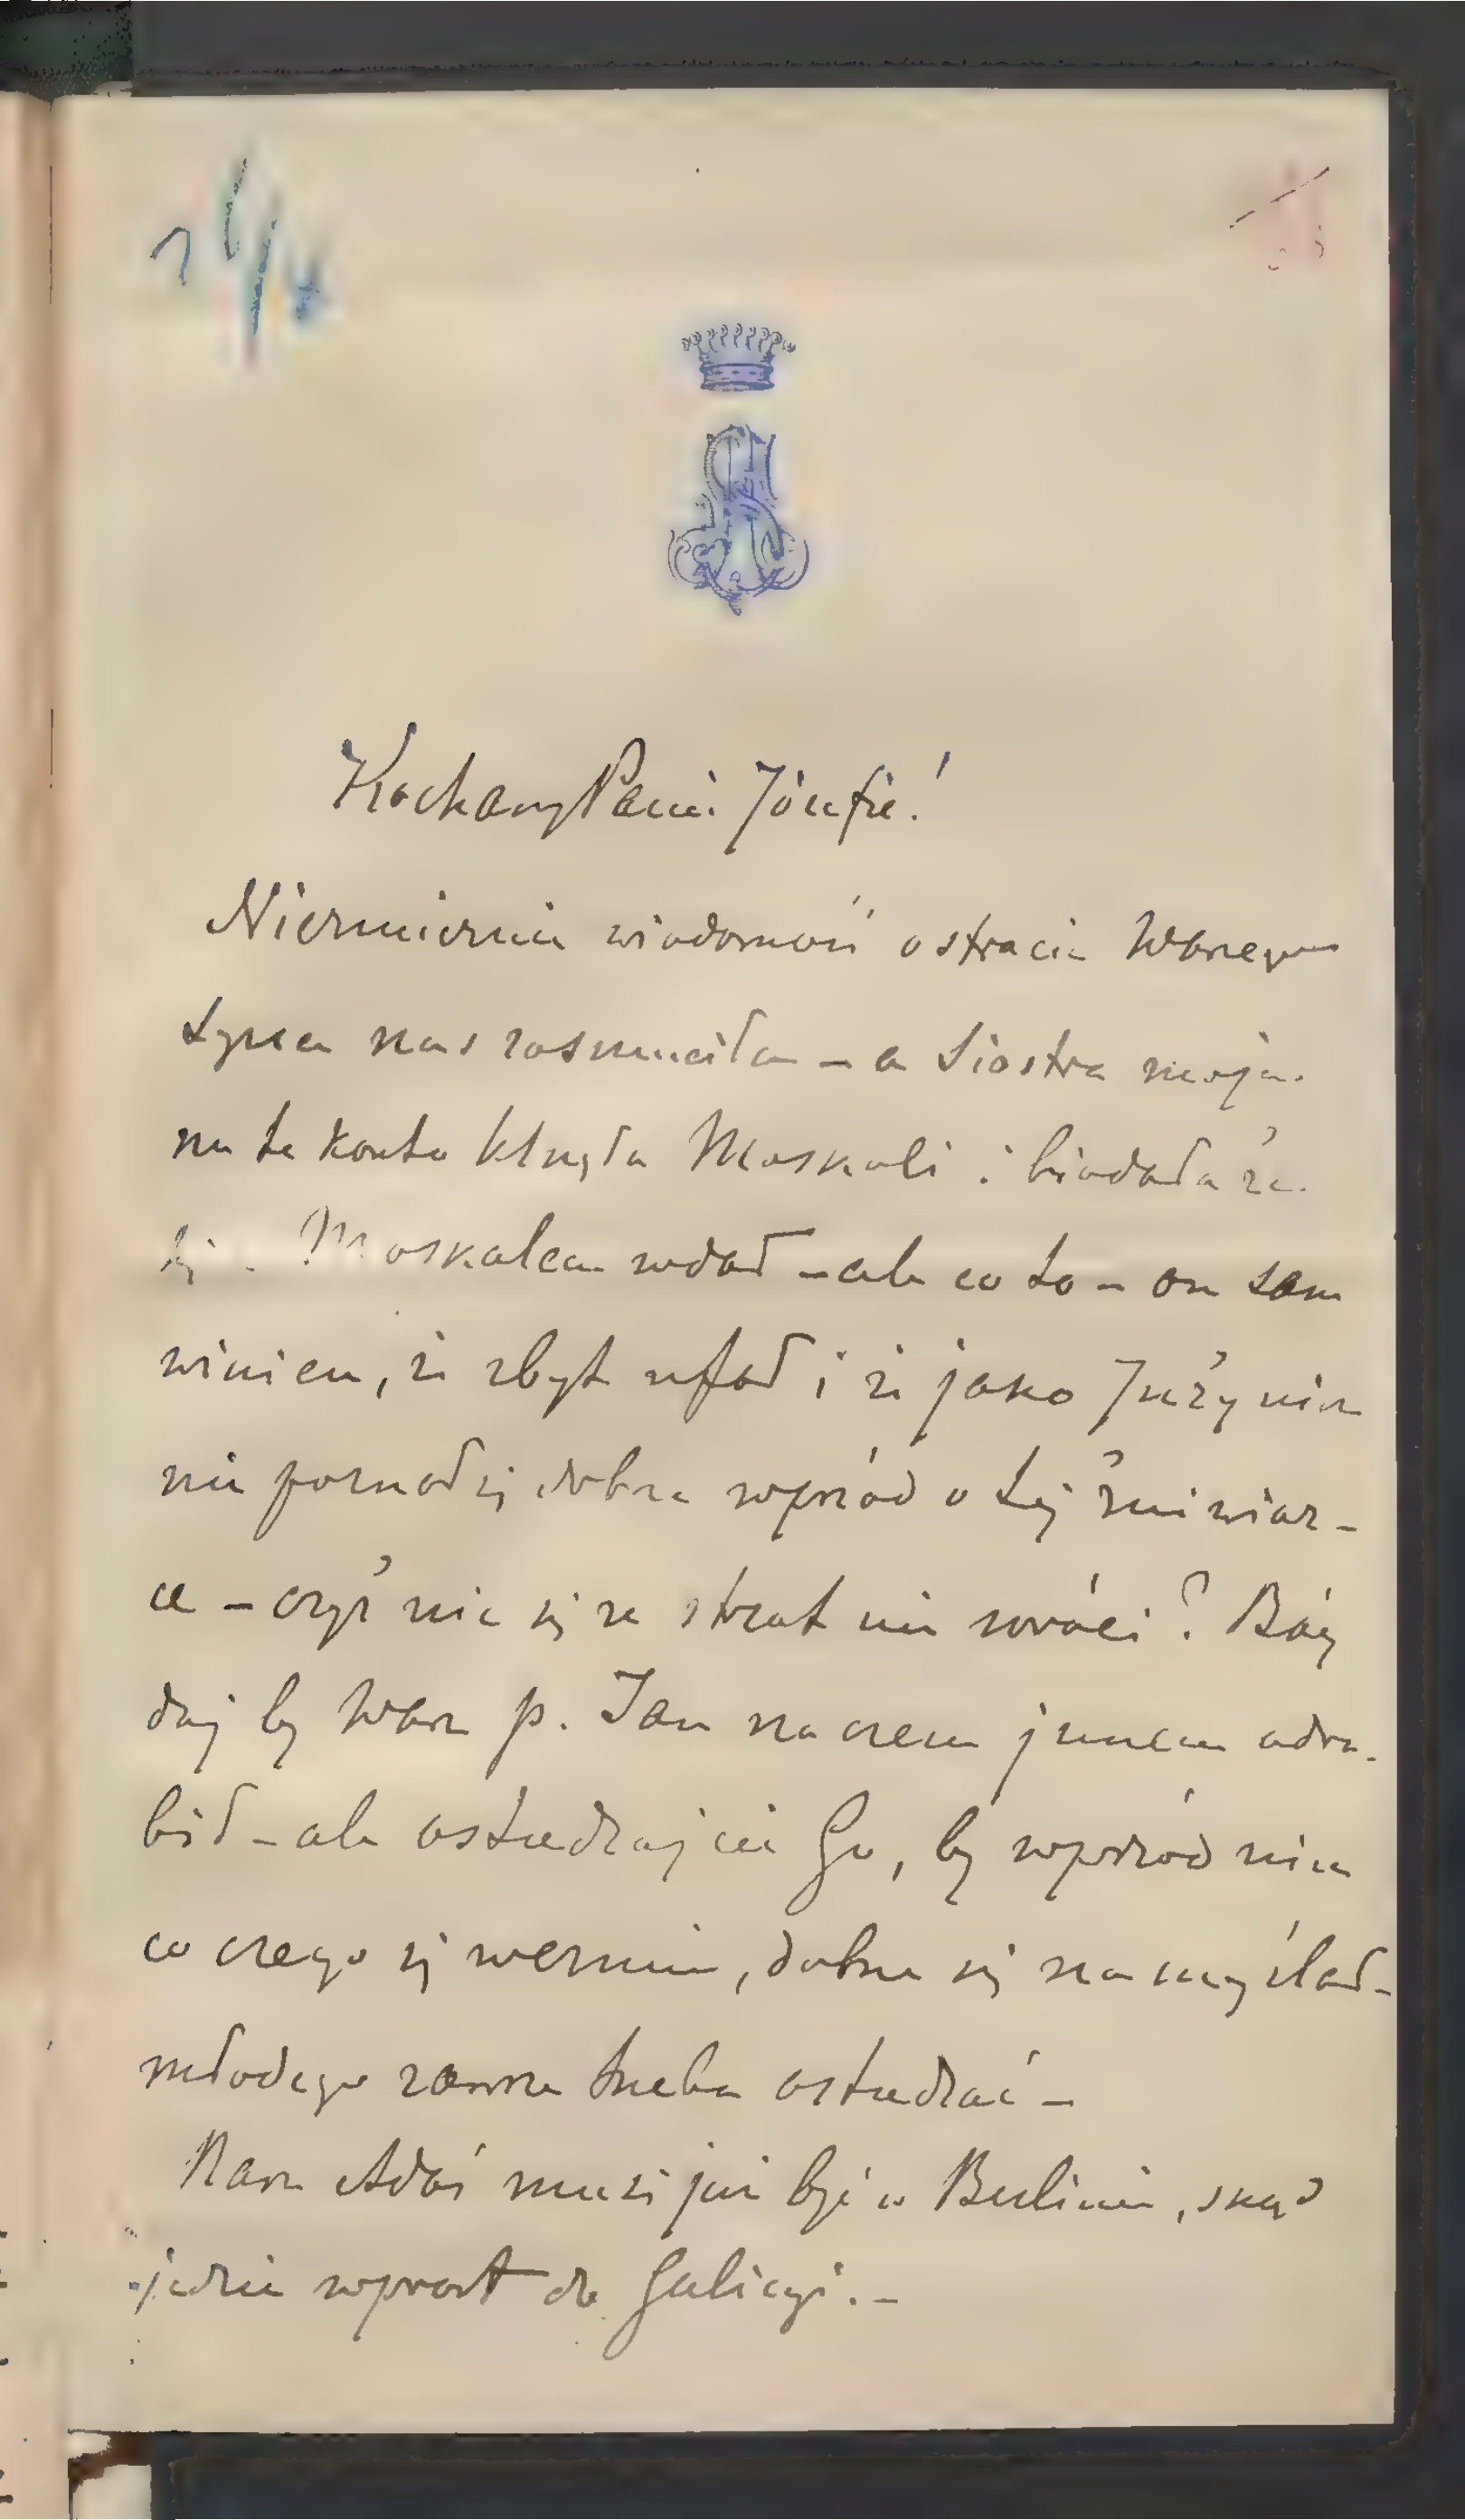 Kochany Panie Józefie!
Niezmiernie wiadomość o stracie Waszego
syna nas zasmuciła – a Siostra moja
na to konto klnęła Moskali i biadała że
się z Moskalem wdał – ale co to – on sam
winien, że zbyt ufał i że jako Inżynier
nie poznał się dobrze wprzód o tej żniwiar-
ce – czyż nic się ze strat nie wróci? Bóg
daj by Wasz p. Jan na czem innem odro-
bił – ale ostudzajcie Go, by wprzód nim
co czego się weźmie, dobrze się namyślał –
młodego zawsze trzeba ostudzać –
Nasz Adaś musi już być w Berlinie, skąd
jedzie wprost do Galicyi. –